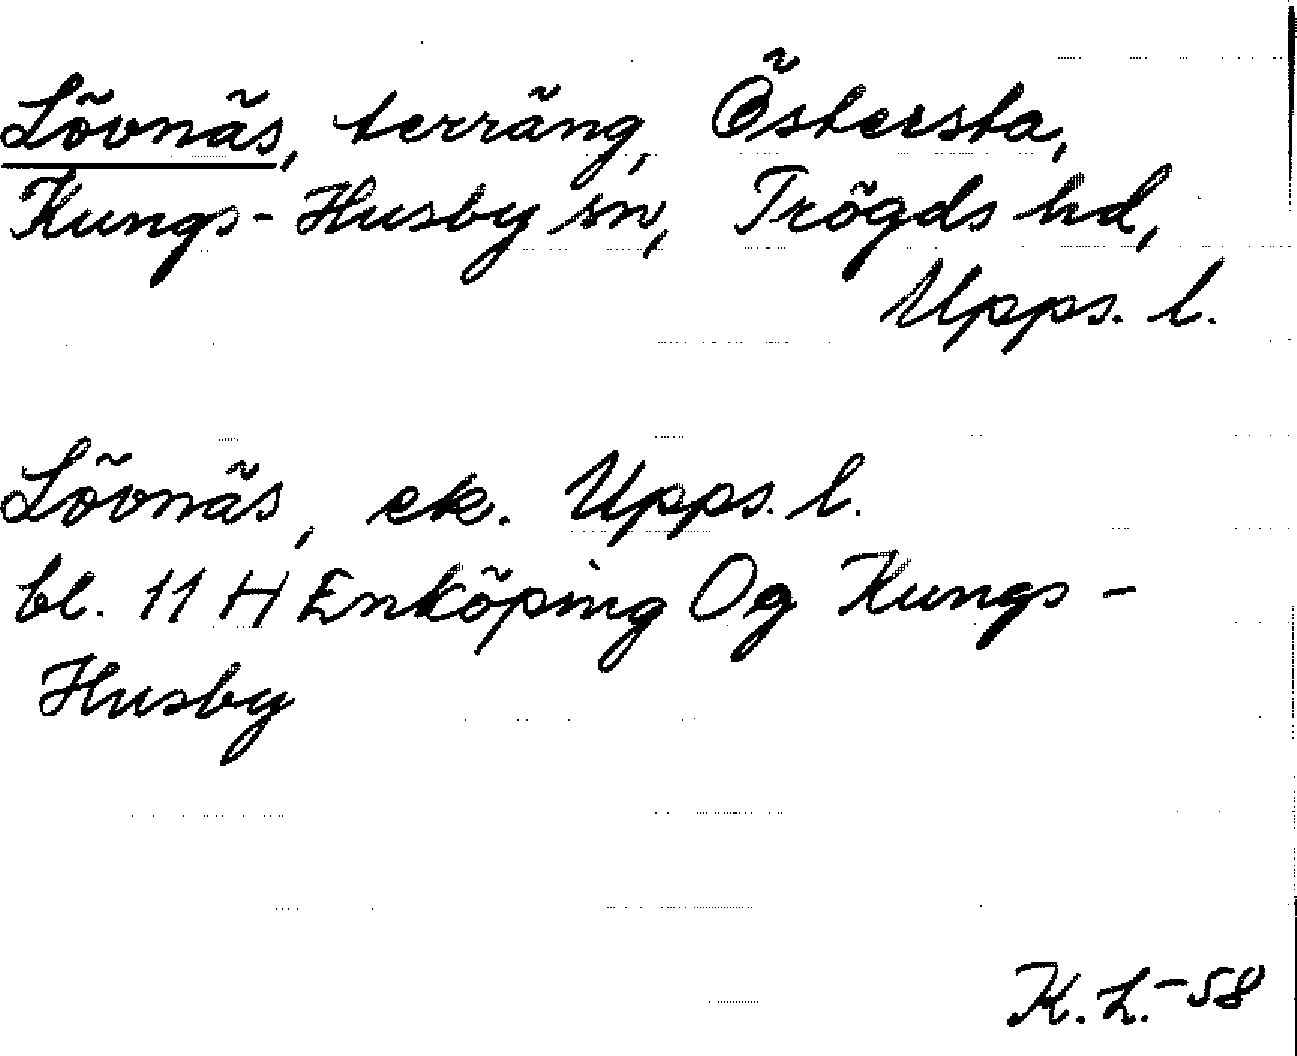 Lövnäs, terräng, Östersta,
Kungs-Husby sn, Trögds hd,
Upps. l.
Lövnäs, ek. Upps. l.
bl. 11 H Enköping Og Kungs-
Husby
K. L. -58